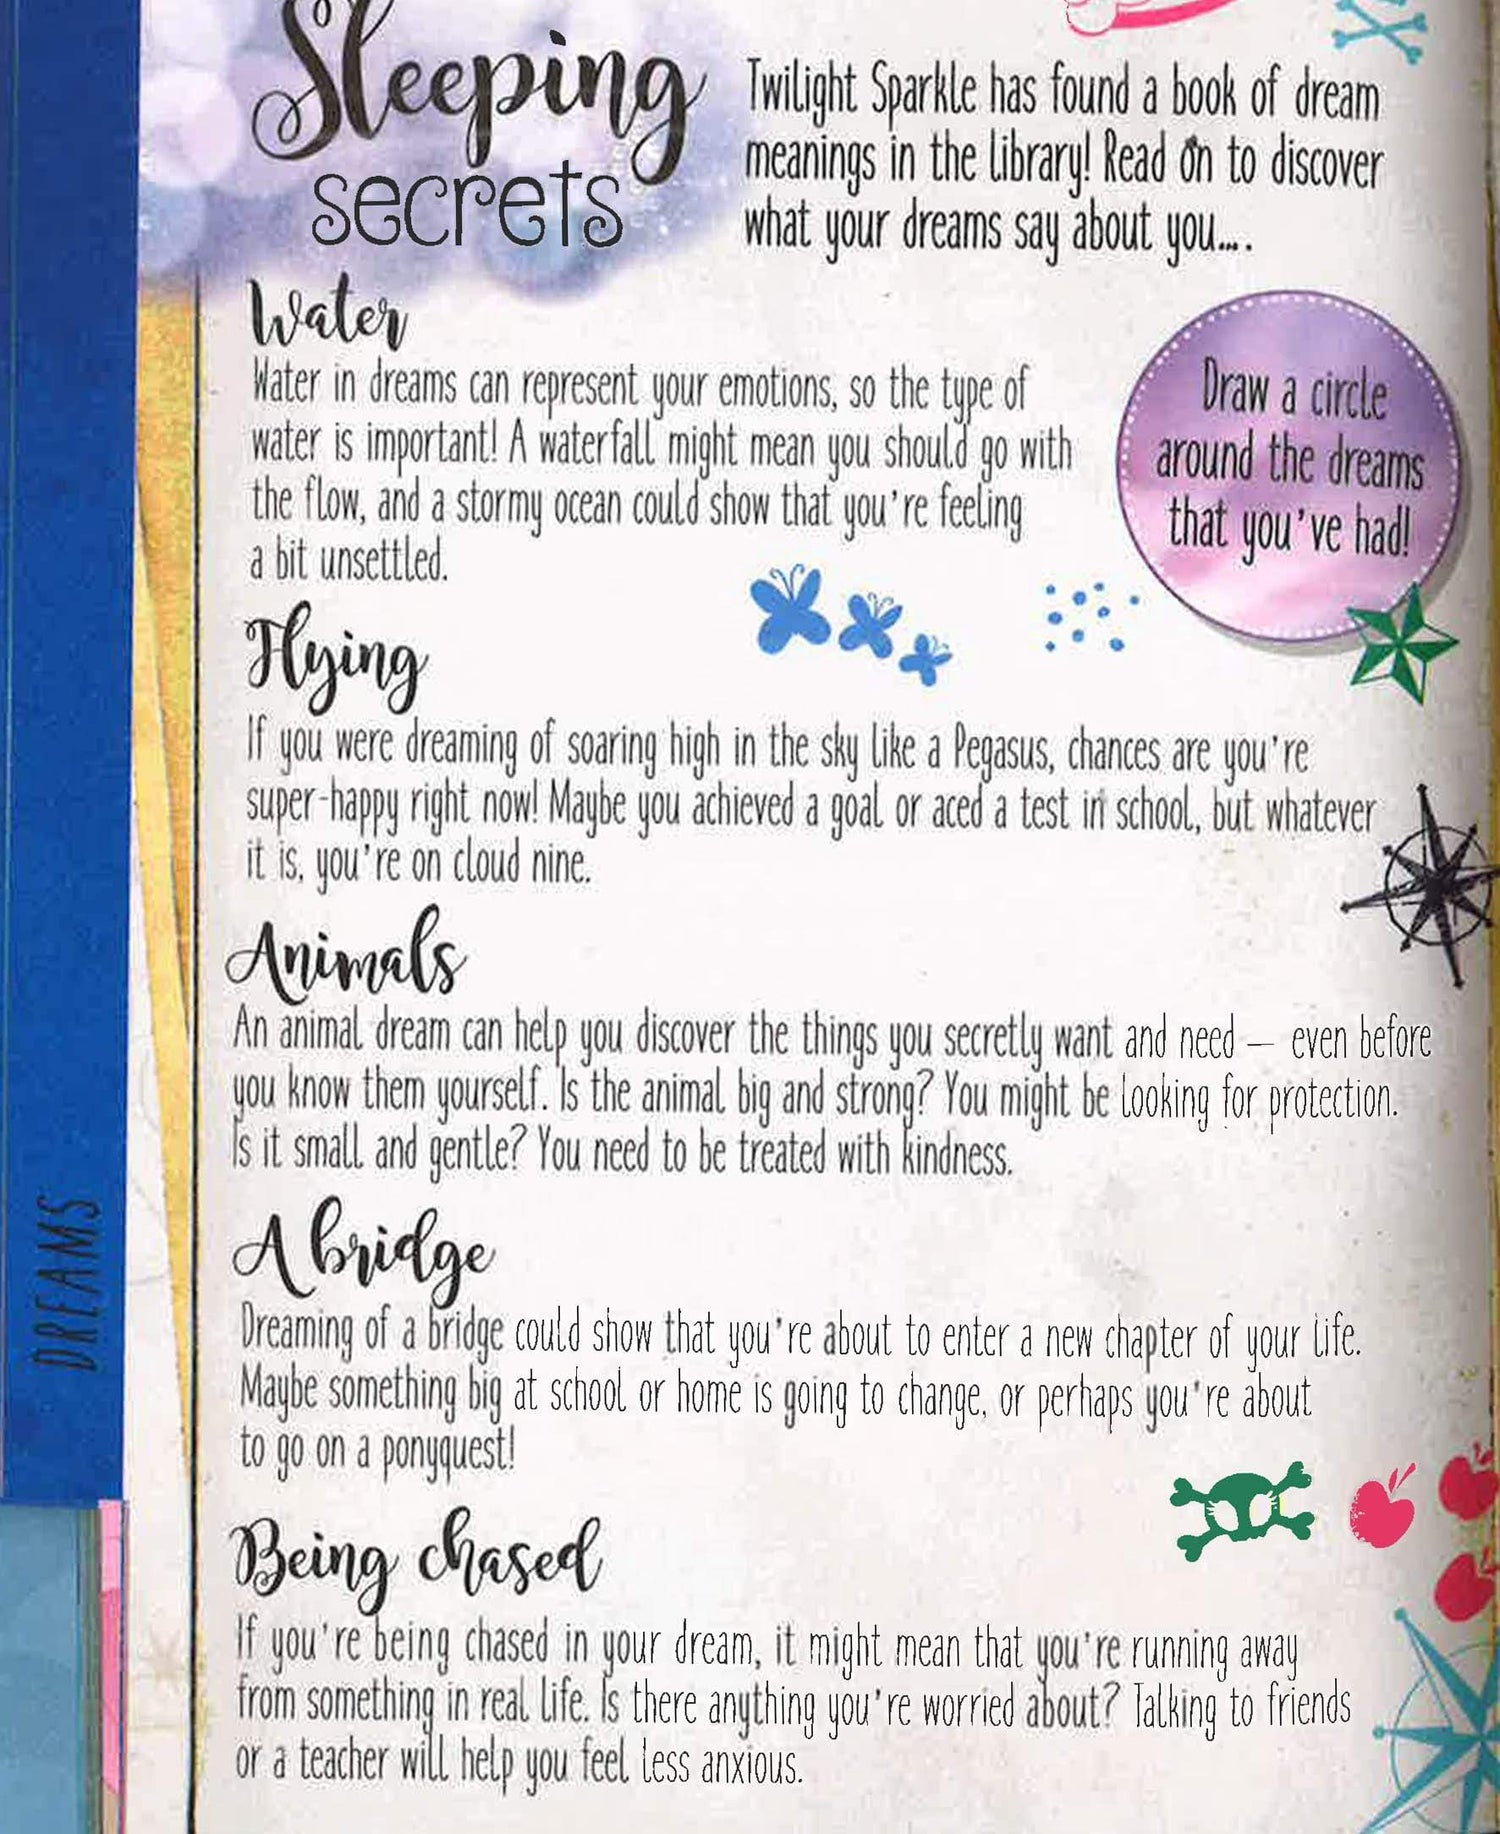 Sleeping
secrets
Twilight Sparkle has found a book of dream
meanings in the library! Read on to discover
what your dreams say about you....
Water
Water in dreams can represent your emotions, so the type of
water is important! A waterfall might mean you should go with
the flow, and a stormy ocean could show that you're feeling
a bit unsettled.
Draw a circle
around the dreams
that you've had!
Flying
If you were dreaming of soaring high in the sky like a Pegasus, chances are you're
super-happy right now! Maybe you achieved a goal or aced a test in school, but whatever
it is, you're on cloud nine.
Animals
An animal dream can help you discover the things you secretly want and need – even before
you know them yourself. Is the animal big and strong? You might be looking for protection.
Is it small and gentle? You need to be treated with kindness.
A bridge
Dreaming of a bridge could show that you're about to enter a new chapter of your life.
Maybe something big at school or home is going to change, or perhaps you're about
to go on a ponyquest!
Being chased
If you're being chased in your dream, it might mean that you're running away
from something in real life. Is there anything you're worried about? Talking to friends
or a teacher will help you feel less anxious.
DREAMS